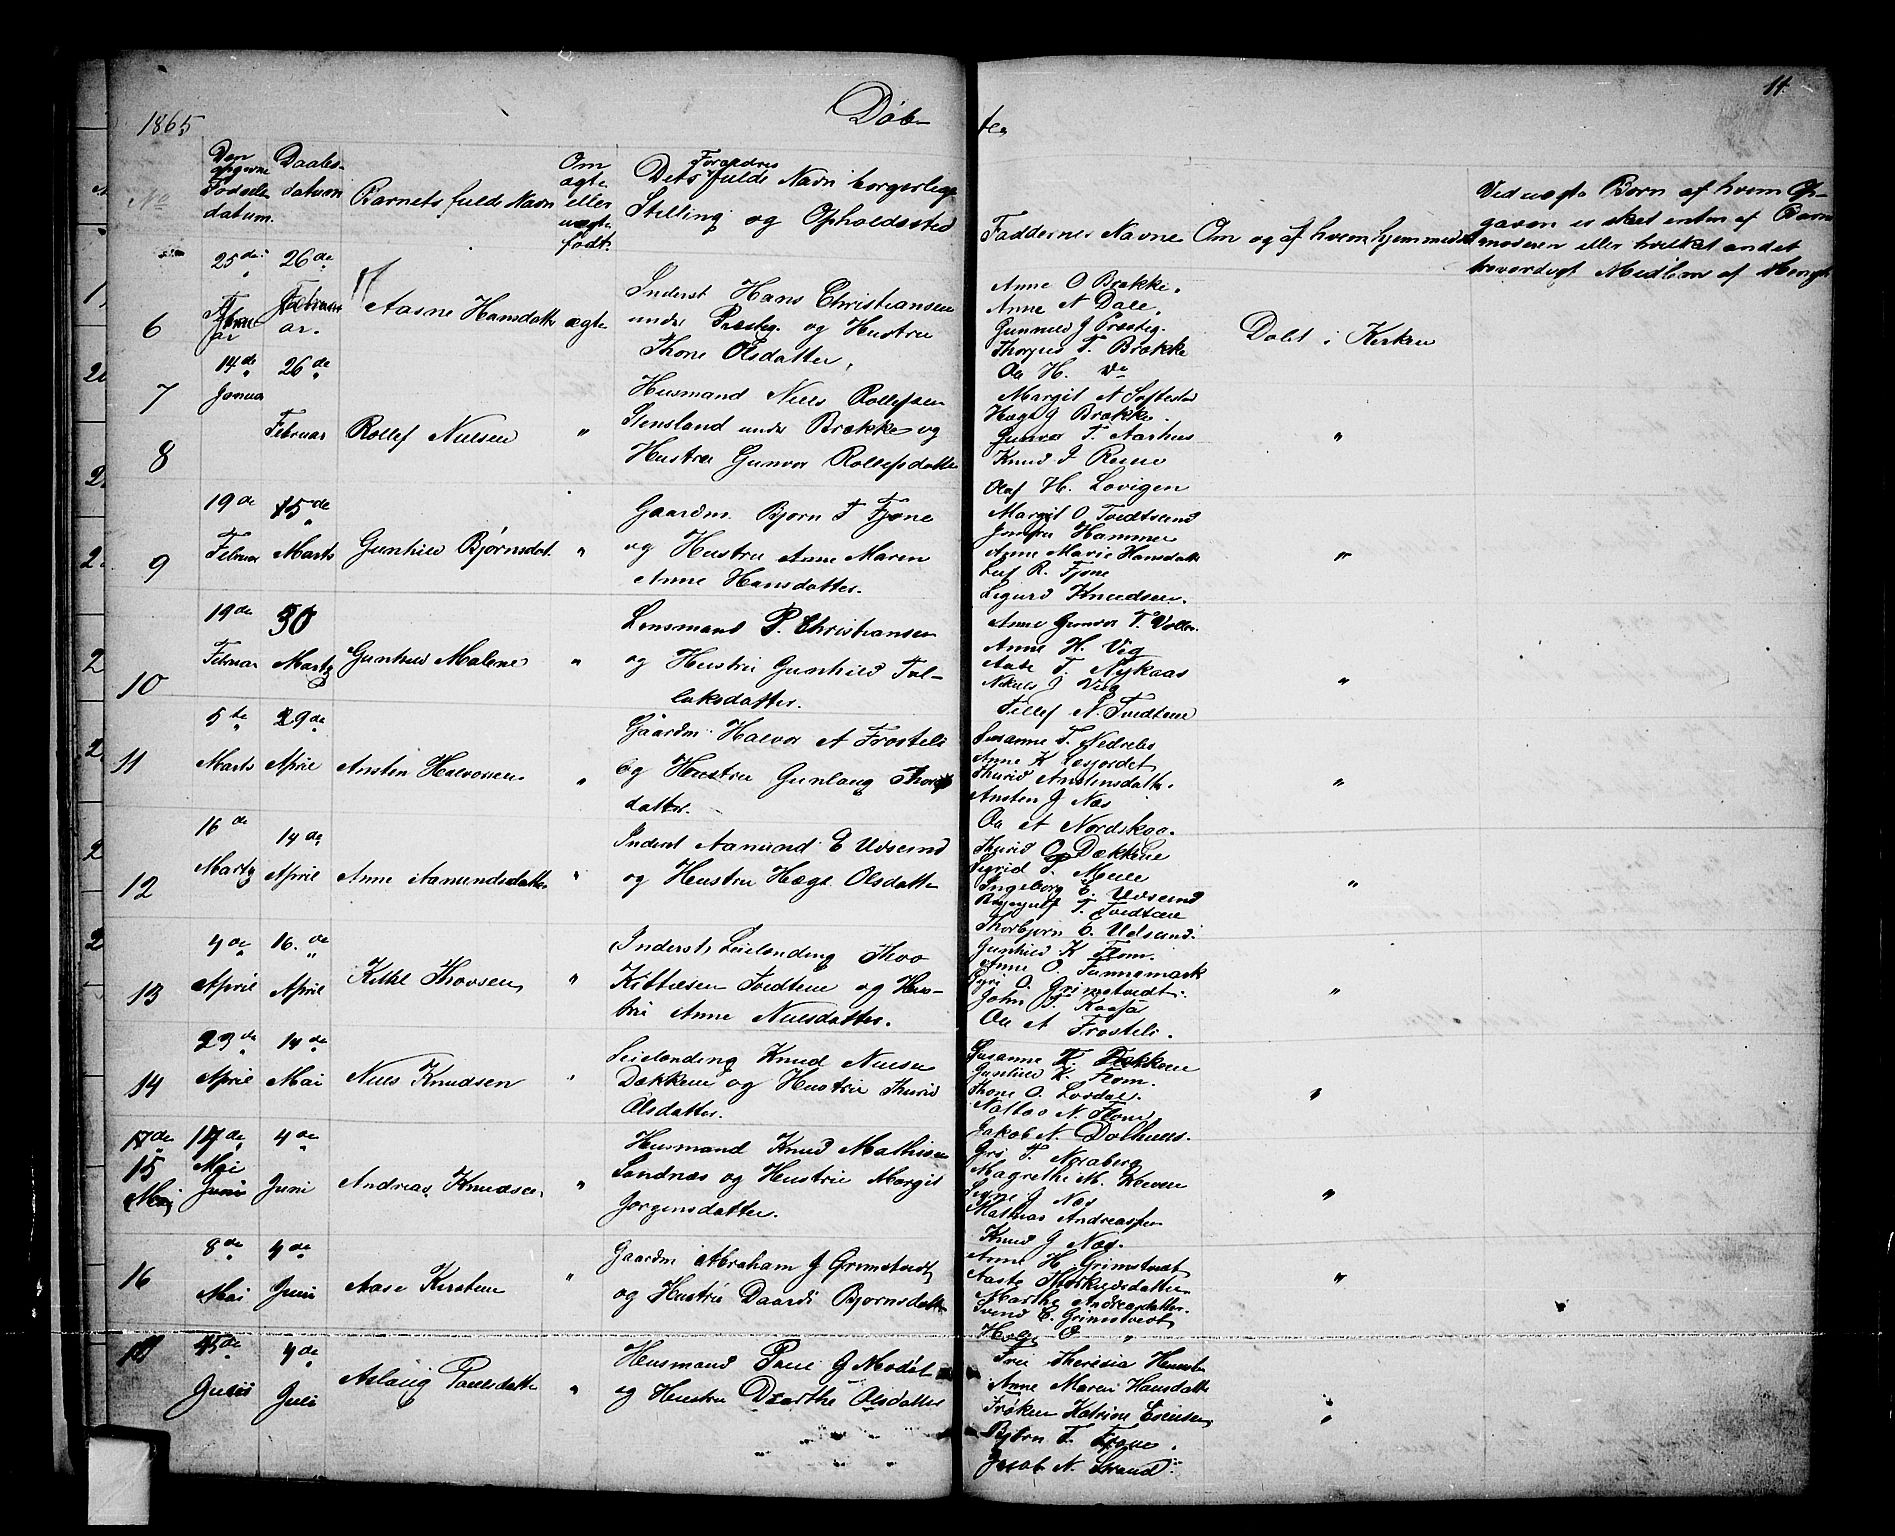 1865 Døb-
te
11
No
Den opgivne Fødsels datum.
Daabs-
datum
Barnets fulde Navn
Om
ægte
eller
uægte
født.
Dets Forældres fulde Navn borgerlige
Stilling og Opholdssted
Faddernes Navne
Om og af hvem hjemmedøbt
Ved uægte Børn af hvem Op-
gaven er sket enten af Barne
moderen eller hvilket andet
troværdigt Medlem af Menigh
6
25de
Februar
26de
Februar
Aasne Hansdatter
ægte
Inderst Hans Christiansen
under Præsteg. og Hustru
Thone Olsdatter,
Anne O Brække.
Anne N Dale,
Gunnild J Præsteg.
Thorgus T. Brække
Ou H. do
Døbt i Kirken
7
14de
Januar
26de
Februar
8
Rollef Nielsen
"
Husmand Niels Rollefsen
Stensland under Brække og
Hustru Gunvor Rollefsdatter
Margit N Softestad
Hæge J Brække.
Gunvor T. Aarhus
Knud J
Olaf H. Lovigen
"
9
19de
Februar
15de
Marts
Gunhild Bjørnsdat.
"
Gaardm. Bjørn T Fjone
og Hustru Anne Maren
Anne Hansdatter.
Margit O Tvedtsund
Jomfru Hammer
Anne Marie Hansdatter
Leif R. Fjone
Sigurd Knudsen.
"
10
19de
Februar
30
Marts
Gunhild Malene
"
Lensmand P. Christiansen
og Hustru Gunhild Tal-
laksdatter.
Anne Gunvor T.
Anne H. Vig
Aase T. Nykaas
J Vig
Tellef N Tvedtene
"
11
5te
Marts
29de
April
Ansten Halvorsen
"
Gaardm. Halvor A Frosteli
og Hustru Gunlaug Thors
datter.
Susanne T. Nedrebø
Anne K Lesjordet
Thurid Anstensdatter.
Ansten J Næs
Ou A Nordskog.
"
12
16de
Marts
14de
April
Anne Aamundsdatter
"
Inderst Aamund E Udsund
og Hustru Hæge Olsdatter
Thurid O Dækkene
Sigrid T. Meile
Ingeborg E. Udsund
T. Tvedtene
Thorbjørn E. Udsund.
"
13
4de
April
16de
April
Kittel Thovsen
"
Inderst, Leilænding Thov
Kittilsen Tvedtene og Hus-
tru Anne Nielsdatter.
Gunhild K Flom.
Anne O. Tunnemark
Gyri O. Grimstvedt.
John T. Kaasa
Ou A Frosteli.
"
14
23de
April
14de
Mai
Niels Knudsen
"
Leilænding Knud Nielsen
Dækkene og Hustru Thurid
Olsdatter.
Susanne K. Dækkene
Gunhild K. Flom.
Thone O. Lordal.
N. Flom
Jakob N. Dalhuus.
"
17de
15
Mai
17de
Mai
4de
Juni
Andreas Knudsen
"
Husmand Knud Mathisen
Sandnæs og Hustru Margit
Jørgensdatter.
Gro T. Noraberg
Magrethe M.
Signe J Næs
Mathias Andreassen
Knud J Næs.
"
16
8de
Mai
4de
Juni
Aase Kirstine
"
Gaardm Abraham J Grimstvedt
og Hustru Daardi Bjørnsdatter
Anne H. Grimstvedt
Aaste Thorkildsdatter
Marthe Andreasdatter.
Svend E. Grimstvedt
Helge O "
"
15de
Juli
4de
Juli
Aslaug Paulsdatter
"
Husmand Paul G Modøl
og Hustru Dorthe Olsdatter
Fru Theresia
Anne Maren Hansdatter
Frøken Katrine Evensen
Bjørn T. Fjone.
Jacob N. Strand.
"